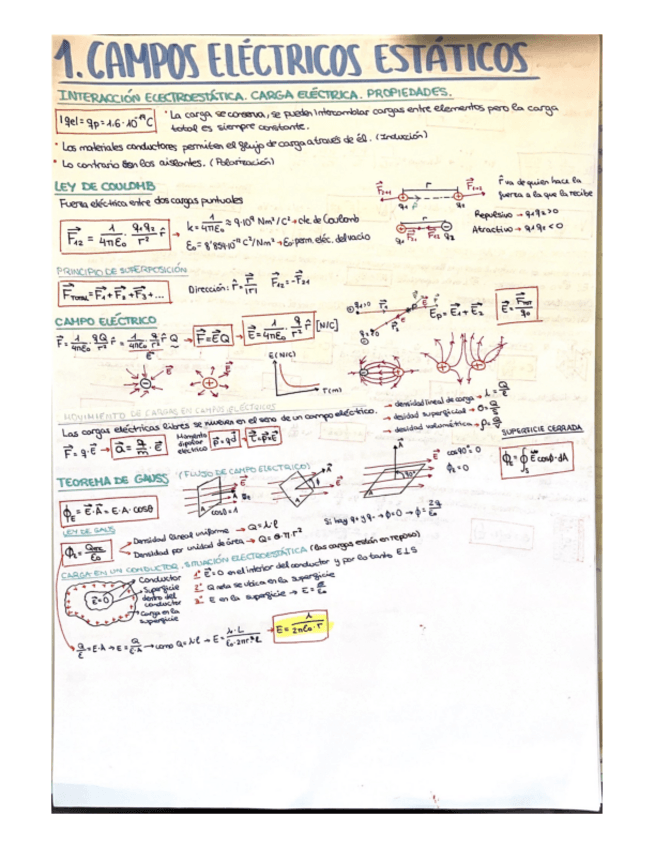 1. CAMPOS ELÉCTRICOS ESTÁTICOS
INTERACCIÓN ELECTROESTÁTICA. CARGA ELÉCTRICA. PROPIEDADES.
|qe| = qp = 1.6 · 10⁻¹⁹ C
· La carga se conserva, se pueden intercambiar cargas entre elementos pero la carga
total es siempre constante.
· Los materiales conductores permiten el flujo de carga a través de él. (Inducción)
· Lo contrario son los aislantes. (Polarización)
LEY DE COULOMB
Fuerza eléctrica entre dos cargas puntuales
F₁₂ = 1/4πε₀ · q₁q₂/r² r̂
→ k = 1/4πε₀ ≈ 9·10⁹ Nm²/C² → cte de Coulomb
ε₀ = 8'854·10⁻¹² C²/Nm² → ε₀: perm. eléc. del vacío
r̂ va de quien hace la
fuerza a la que la recibe
Repulsivo → q₁q₂ > 0
Atractivo → q₁q₂ < 0
PRINCIPIO DE SUPERPOSICIÓN
F TOTAL = F₁ + F₂ + F₃ + ...
Dirección: r̂ = r/|r| F₁₂ = -F₂₁
CAMPO ELÉCTRICO
F = 1/4πε₀ qQ/r² r̂ = 1/4πε₀ q/r² r̂ Q → F = E Q → E = 1/4πε₀ · q/r² r̂ [N/C]
Ep = E₁ + E₂
E (N/C)
r (m)
MOVIMIENTO DE CARGAS EN CAMPOS ELÉCTRICOS
Las cargas eléctricas libres se mueven en el seno de un campo eléctrico.
F = q · E → a = q/m · E
Momento
dipolar
eléctrico
p = q d
→ densidad lineal de carga → λ = Q/l
→ desidad superficial → σ = Q/S
→ desidad volumétrica → ρ = Q/V
SUPERFICIE CERRADA
TEOREMA DE GAUSS (FLUJO DE CAMPO ELECTRICO)
ϕE = E · A = E · A · cosθ
cos0 = 1
cos90° = 0
ϕE = 0
ϕE = ∮ E cosϕ · dA
LEY DE GAUSS
→ Densidad lineal uniforme → Q = λ · l
→ Densidad por unidad de área → Q = σ · π · r²
CARGA EN UN CONDUCTOR, SITUACIÓN ELECTROESTÁTICA (las cargas están en reposo)
E = 0
→ Conductor
→ Superficie
dentro del
conductor
→ Carga en la
superficie
1º E = 0 en el interior del conductor y por lo tanto E ⊥ S
2º Q neta se ubica en la superficie
3º E en la superficie → E = σ/ε₀
→ como Q = λ · l →
E = λ / 2πε₀ · r